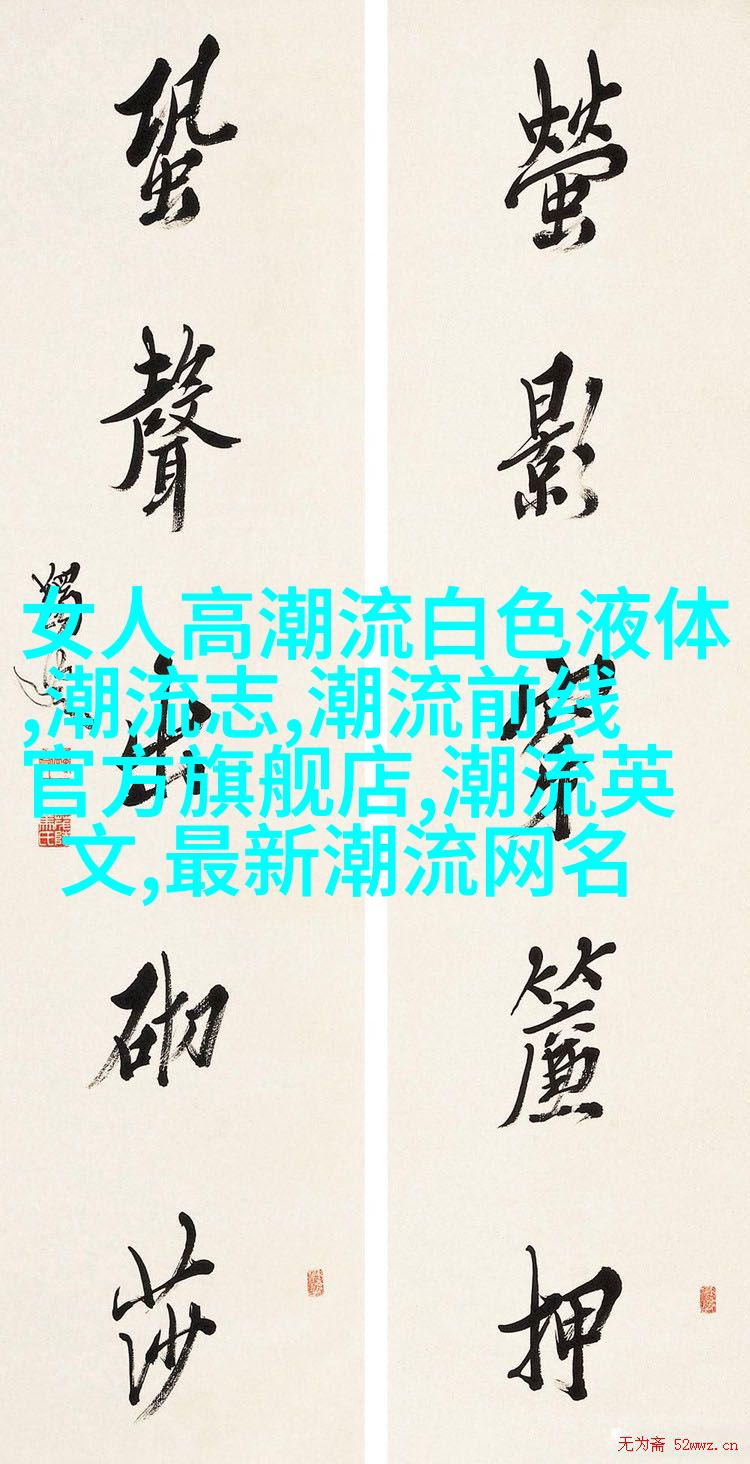 螢影穿簾押
蛩聲出砌莎
女人高潮流白色液体
,潮流志,潮流前线
官方旗舰店,潮流英
文,最新潮流网名
无为斋 52wwz.cn